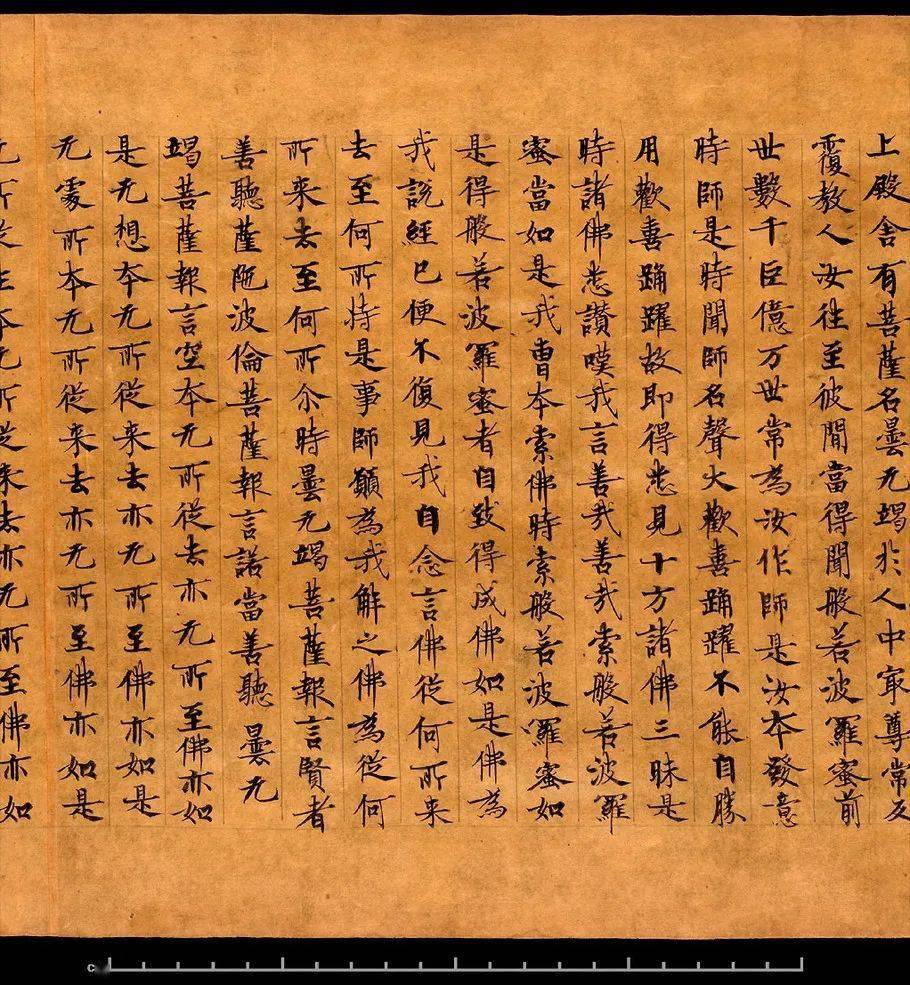 上殿舍有菩薩名曇无竭於人中㝡尊常反
覆教人汝往至彼聞當得聞般若波羅蜜前
世數千巨億万世常為汝作師是汝本發意
時師是時聞師名聲大歡喜踊躍不能自勝
用歡喜踊躍故即得悉見十方諸佛三昧是
時諸佛悉讃嘆我言善哉善哉索般若波羅
蜜當如是我曹本索佛時索般若波羅蜜如
是得般若波羅蜜者自致得成佛如是佛為
我說經已便不復見我自念言佛從何所来
去至何所持是事師願為我解之佛為從何
所来去至何所尒時曇无竭菩薩報言賢者
善聽薩陁波倫菩薩報言諾當善聽曇无
竭菩薩報言空本无所從去亦无所至佛亦如
是无想本无所從来去亦无所至佛亦如是
无處所本无所從来去亦无所至佛亦如是
无所從生本无所從来去亦无所至佛亦如